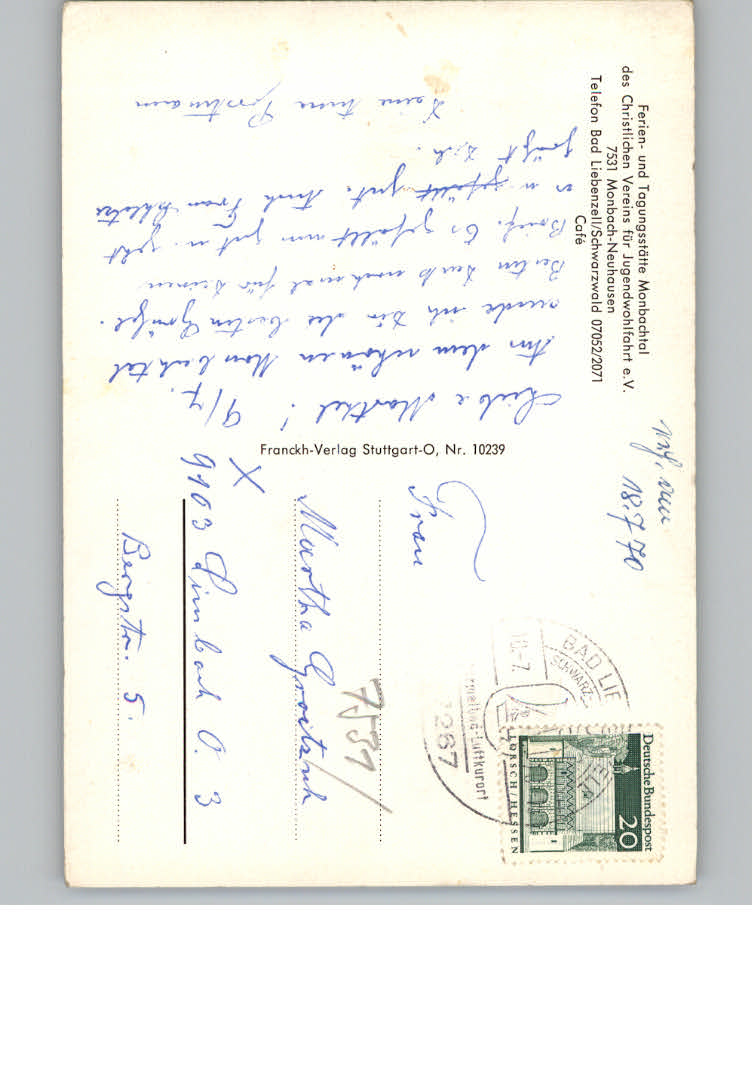 Ferien- und Tagungsstätte Monbachtal
des Christlichen Vereins für Jugendwohlfahrt e.V.
7531 Monbach-Neuhausen
Telefon Bad Liebenzell/Schwarzwald 07052/2071
Café
Liebe Martha! 9/7.
Aus dem schönen Monbachtal
sende ich Dir die besten Grüße.
Besten Dank nochmal für Deinen
Brief. Es gefällt uns gut u. geht
es u. gefällt gut. Auch Frau
grüßt Dich.
Deine
Franckh-Verlag Stuttgart-O, Nr. 10239
18.7.70
Frau
Martha
X
9103 Limbach O. 3
Bergstr. 5.
7531
BAD LIE
SCHWARZ
18.-7.
Luftkurort
267
Deutsche Bundespost
20
LORSCH/HESSEN